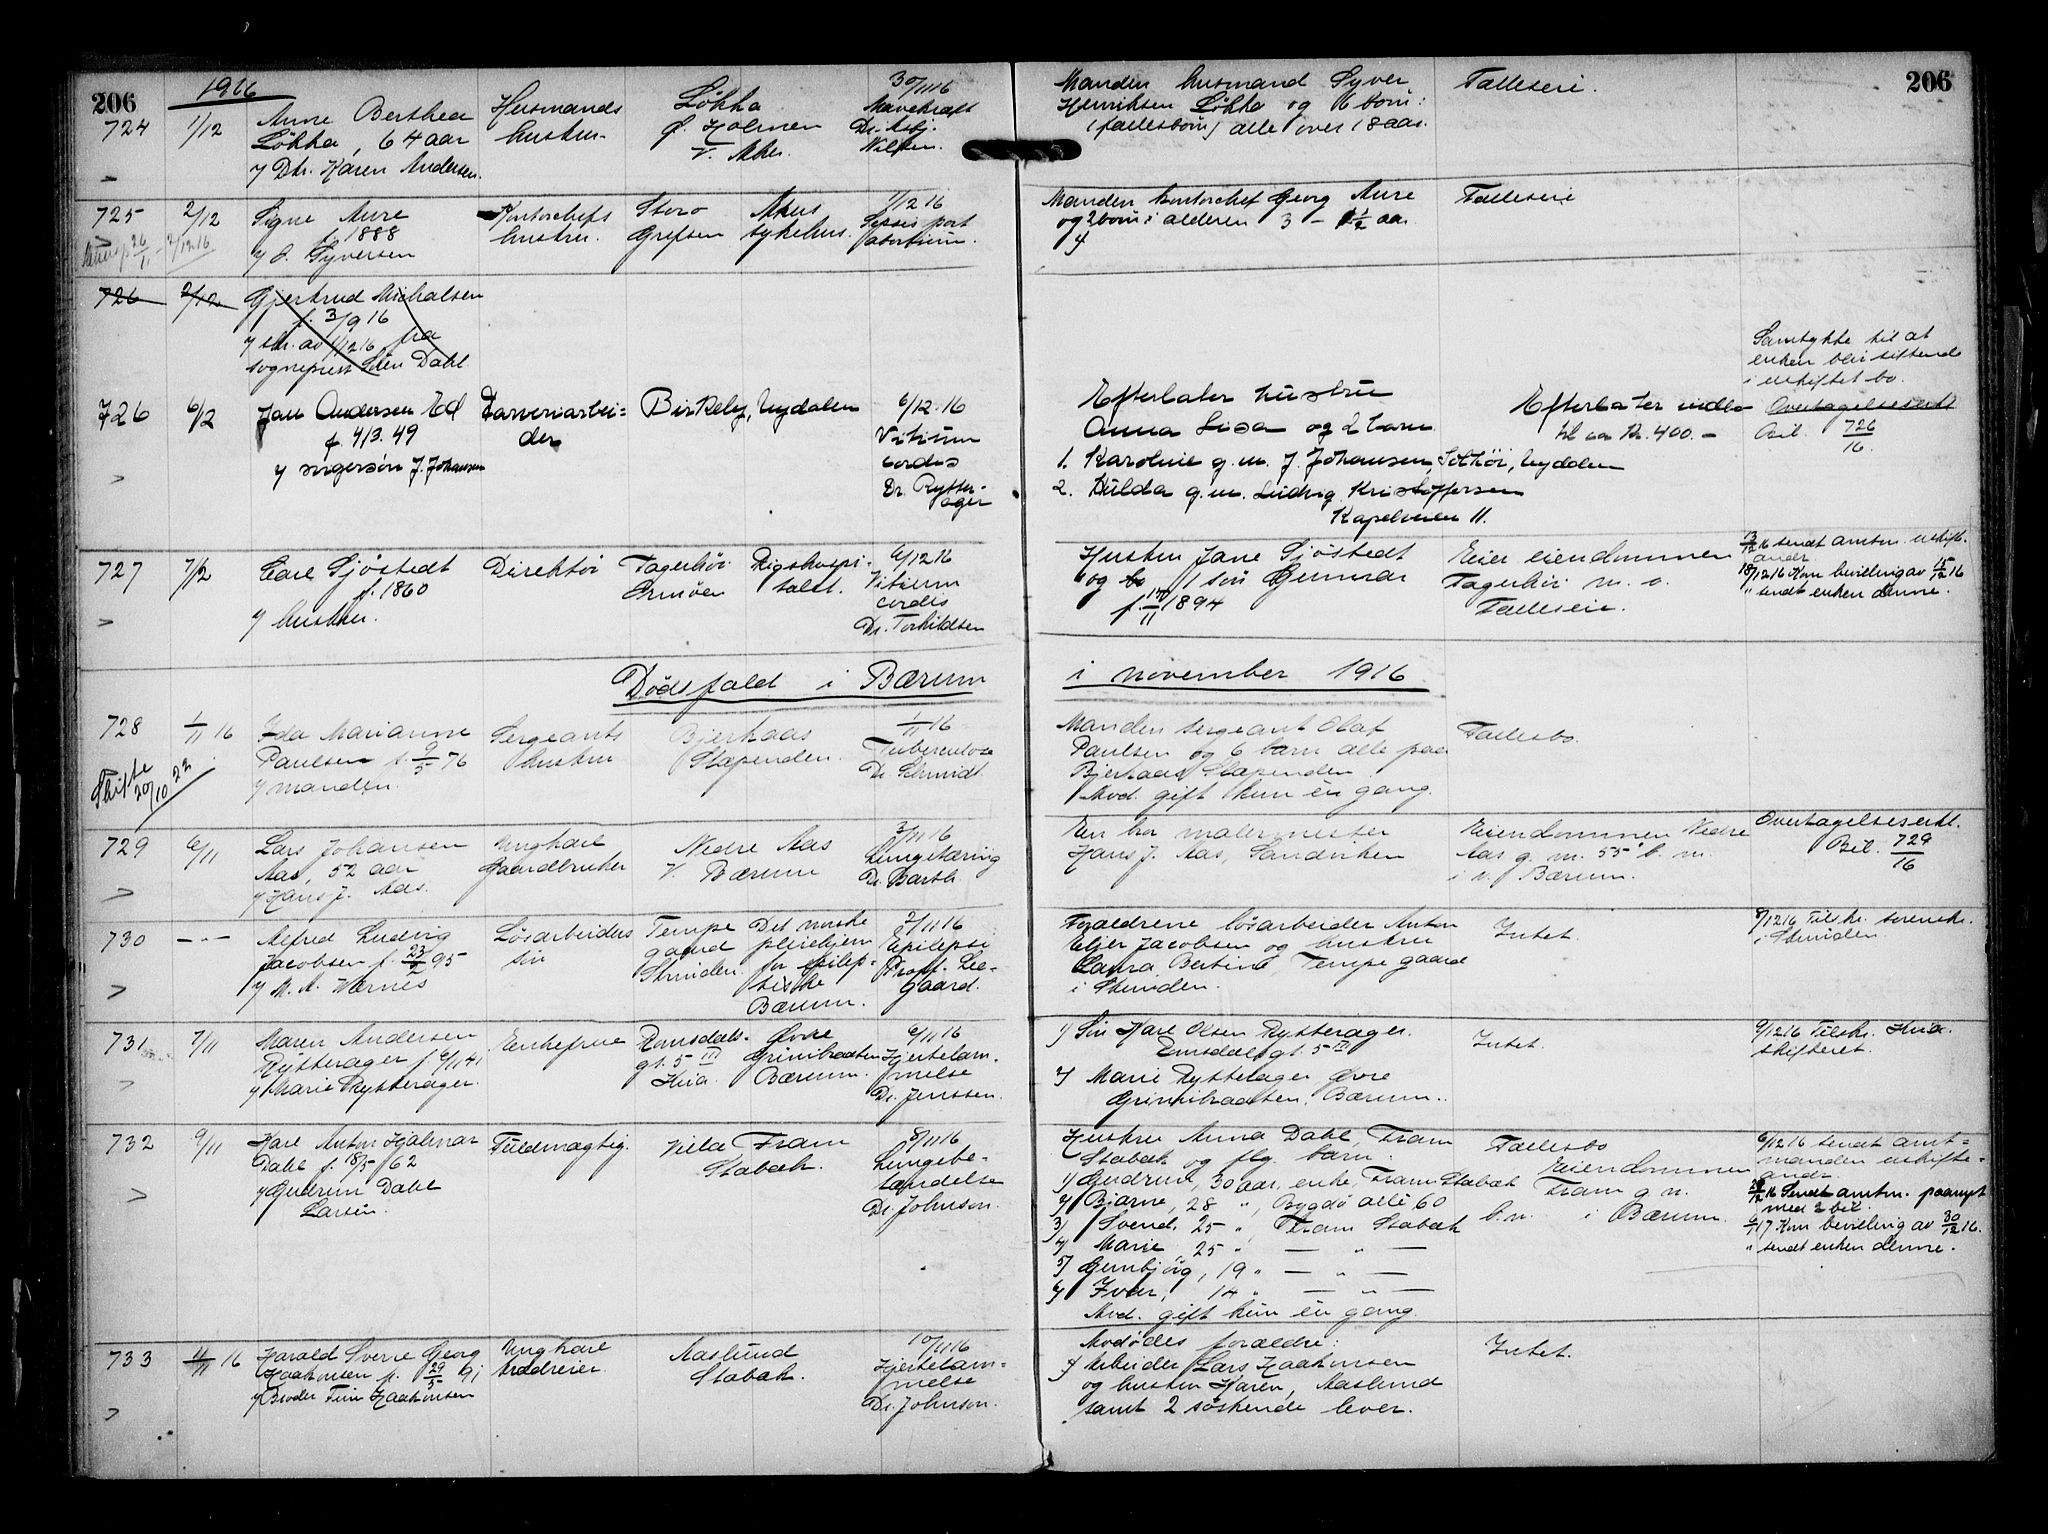 206
1916
724
1/12
Anne Berthea
Løkka, 64 aar
v/ Dtr. Karen Andersen.
Husmands
hustru.
Løkka
V. Aker.
30/11 16
Mavekræft
Dr. Asbj.
Nilsen.
Manden husmand Syver
Henriksen Løkka og 6 børn:
(fællesbørn) alle over 18 aar.
Fælleseie.
206
725
2/12
Signe Aure
f. 1888
v/ O. Syversen
Kontorchefs
hustru.
Storo
Grefsen
Akers
sykehus.
1/12 16
Sepsis port
abortium.
Manden kontorchef Georg Aure
og 2 børn i alderen 3 - 1 1/2 aar.
Fælleseie
726
2/12
Gjertrud Michalsen
f. 3/9 16
v/ skr. av 1/12 16 fra
sogneprest Sven Dahl.
726
6/12
Jan Andersen Ed
f. 4/3. 49
v/ svigersøn J. Johansen
Farveriarbei-
der
Birkely, Nydalen
6/12.16
Vitium
cordis
Dr. Rytter-
ager
Efterlater hustru
Anna Lisa og 2 barn
1. Karoline g.m. J. Johansen, Solhøi, Nydalen
2. Hulda g.m. Ludvig Kristoffersen
Kapelveien 11.
Efterlater indbo
til ca Kr. 400.-
Samtykke til at
enken blir sittende
i uskiftet bo.
Overtagelseserkl.
Bil. 726/16.
727
7/12
Carl Sjøstedt
f. 1860
v/ hustru.
Direktør
Fagerhøi
Ormøen
Rigshospi-
talet.
6/12 16
Vitium
cordis
Dr. Torkildsen
Hustru Jane Sjøstedt
og 1 søn Gunnar
f. 17/11 1894
Eier eiendommen
Fagerhøi m. v.
Fælleseie.
13/12 16 sendt amtm. uskift.
andr.
18/12 16 Kom bevilling av 15/12 16
" sendt enken denne.
Dødsfald i Bærum
i november 1916
728
1/11 16
Skifte
20/10 22
Ida Marianne
Paulsen f. 9/5 76
v/ manden.
Sergeants
hustru
Bjerkaas
Slependen.
1/11 16
Tuberculose
Dr. Schmidt.
Manden sergeant Olaf
Paulsen og 6 barn alle paa
Bjerkaas Slependen.
Avd. gift kun én gang.
Fællesbo.
729
6/11
Lars Johansen
Aas, 52 aar
v/ Hans J. Aas.
Ungkarl
Gaardbruker
Nedre Aas
V. Bærum
3/11 16
Lungetæring
Dr. Barth.
En bror malermester
Hans J. Aas, Sandviken
Eiendommen Nedre
Aas g. nr. 55 b. nr.
i V. Bærum.
Overtagelseserkl.
Bil. 729/16
730
— " —
Alfred Ludvig
Jacobsen f. 23/2 95
v/ M. A. Wærnes
Løsarbeiders
søn
Tempe
gaard
Strinden.
Det norske
pleiehjem
for epilep-
tiske
Bærum.
2/11 16
Epilepsi
Proff. Lee-
gaard.
Forældrene løsarbeider Anton
Eljer Jacobsen og hustru
Laura Bertine, Tempe gaard
i Strinden.
Intet.
8/12 16 Tilskr. sorenskr.
i Strinden.
731
7/11
Maren Andersen
Rytterager f. 6/1 41
v/ Marie Rytterager.
Enkefrue
Romsdals-
gt. 5 III
Kr.a.
Øvre
Grinibraaten
Bærum.
6/11 16
Hjertelam-
melse
Dr. Jenssen.
1/ Søn Karl Olsen Rytterager.
Romsdalsgt. 5 III
2/ Marie Rytterager Øvre
Grinibraaten, Bærum.
Intet.
9/12 16 Tilskr. Kr.a.
skifteret.
732
9/11
Karl Anton Hjalmar
Dahl f. 18/5 62
v/ Gudrun Dahl
Larsen.
Fuldmægtig.
Villa Fram
Stabæk.
8/11 16
Lungebe-
tændelse
Dr. Johnson.
Hustru Anna Dahl, Fram
Stabæk og flg. barn:
1/ Gudrun, 30 aar, enke, Fram Stabæk
2/ Bjarne, 28 ", Bygdø allé 60
3/ Svend, 25 ", Fram Stabæk
4/ Marie, 25 " — " —
5/ Gunbjørg, 19 " — " —
6/ Ivar, 14 " — " —
Avd. gift kun én gang.
Fællesbo
Eiendommen
Fram g. nr.
b. nr. i Bærum.
6/12 16 sendt amt-
manden uskifte-
andr.
28/12 16 Sendt amtm. paanyt
med 2 bil.
1/17 Kom bevilling av 30/12 16.
" sendt enken denne.
733
11/11 16
Harald Sverre Georg
Haakonsen f. 29/5 91
v/ Broder Finn Haakonsen
Ungkarl
Aaslund
Stabæk.
10/11 16
Hjertelam-
melse
Dr. Johnson.
Avdødes forældre:
Arbeider Lars Haakonsen
og hustru Karen, Aaslund
samt 2 søskende lever.
Intet.